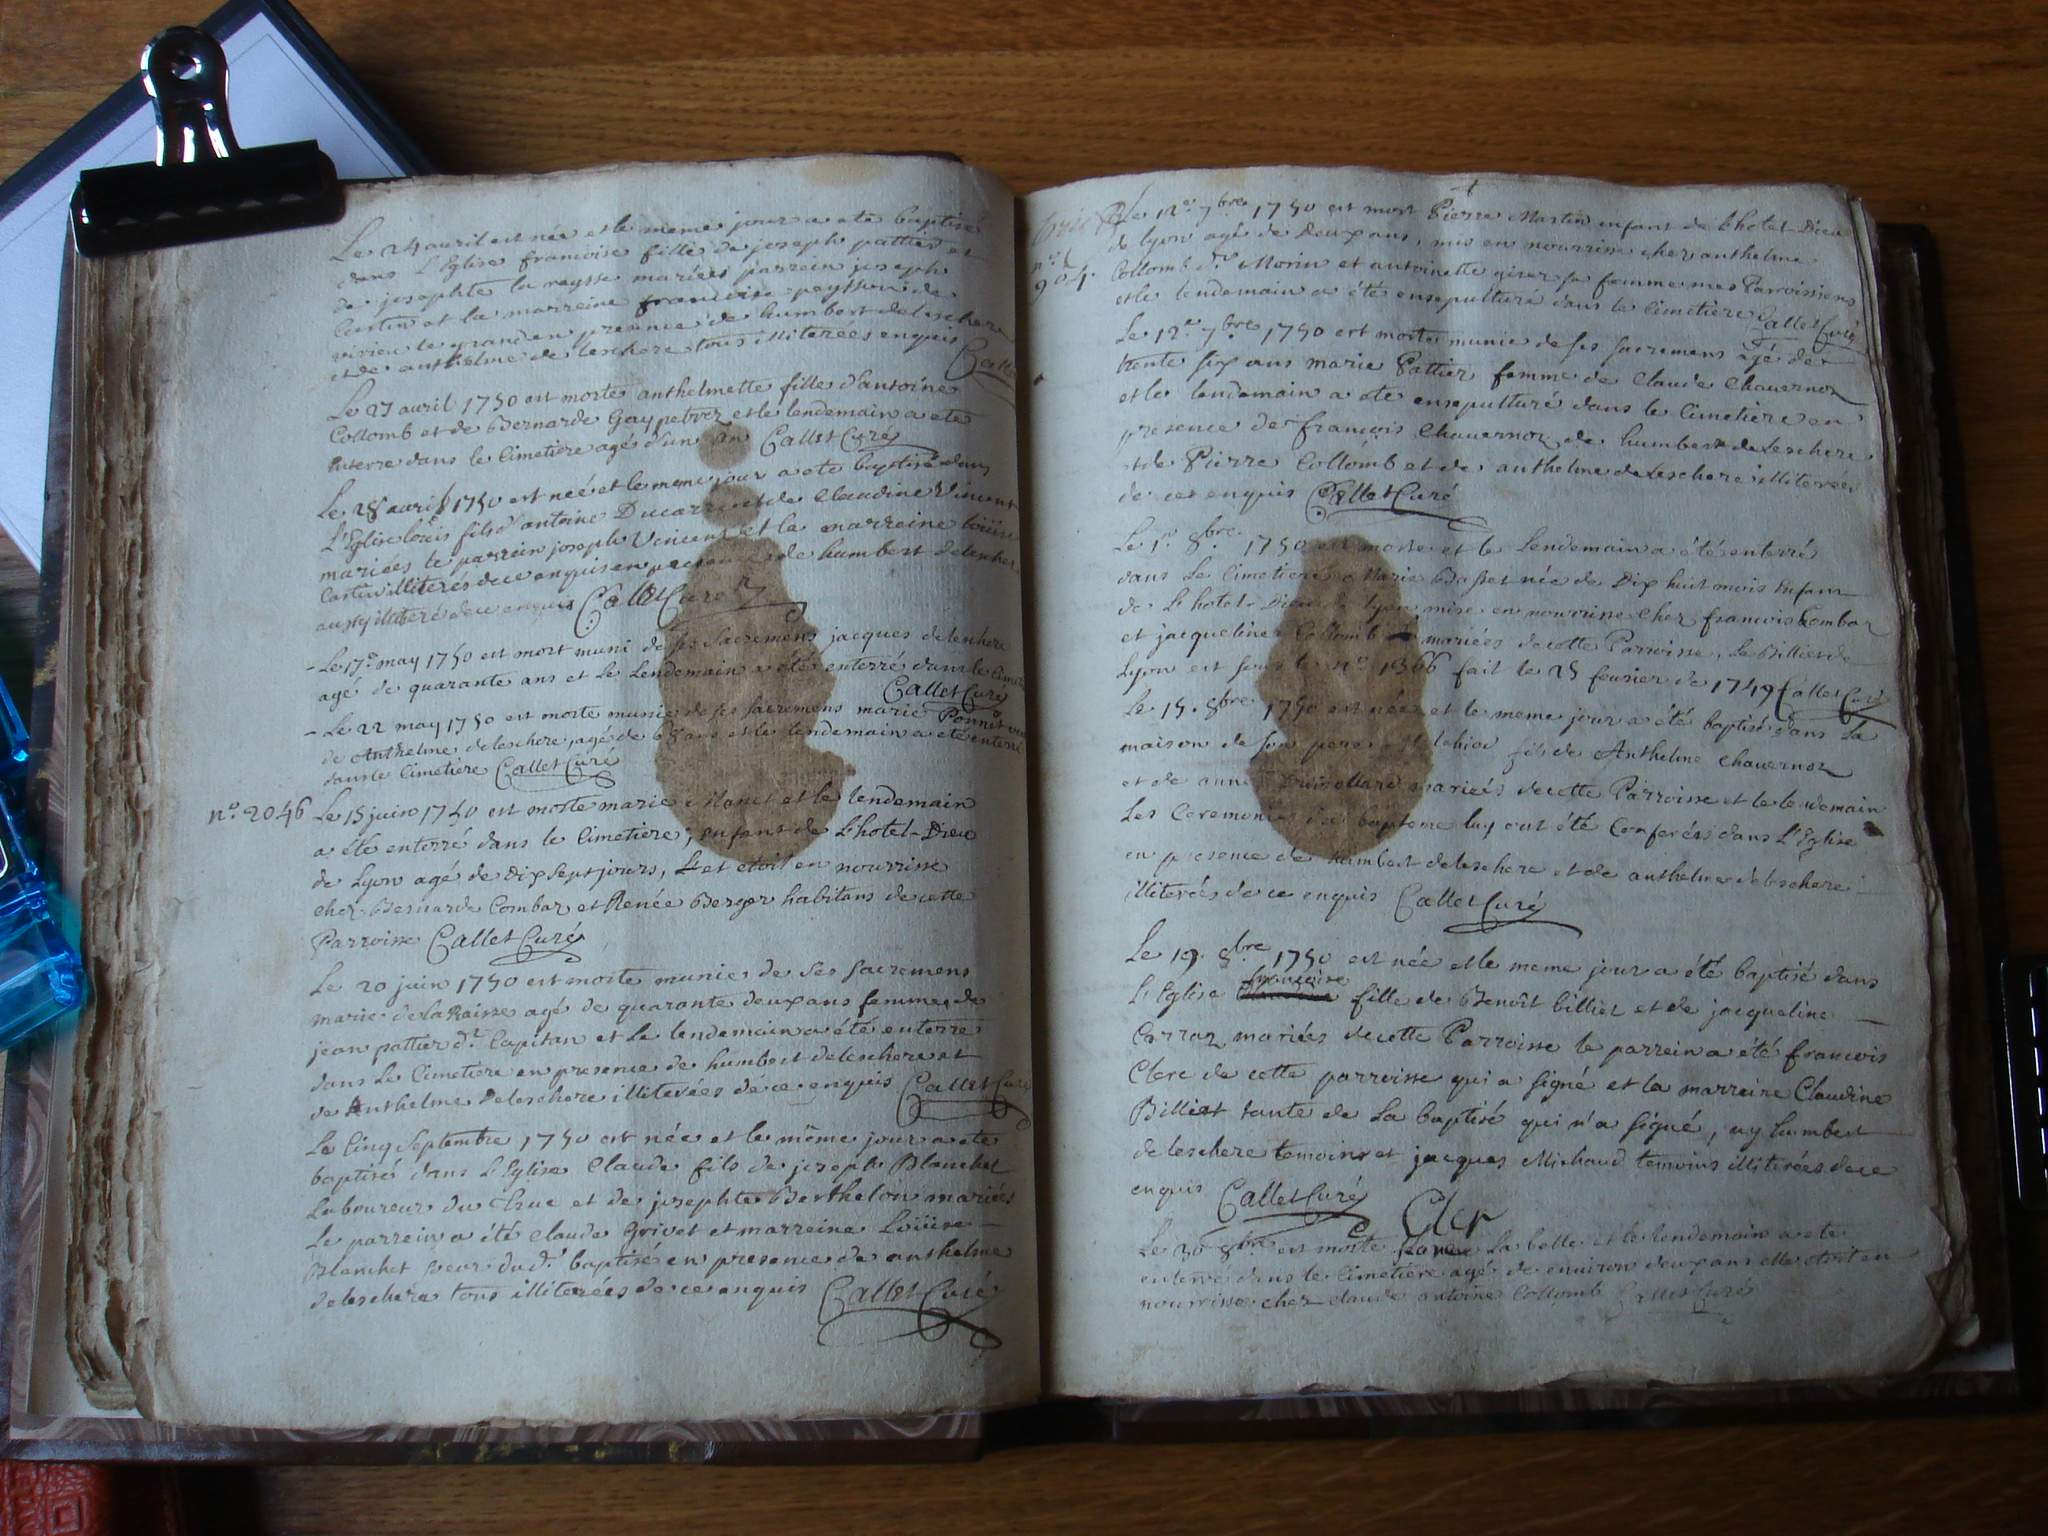 Le 24 avril est née et le meme jour a ete baptisé
dans L'Eglise francoise fille de joseph pattier et
de josephte la raysse mariées parrein joseph
Costin et la marreine francoise peysson de
virieu le grand en presence de humbert deleschere
et de anthelme de leschere tous illiterées enquis
Callet
Le 27 avril 1750 est morte anthelmette fille d'antoine
Collomb et de Bernarde Gaypetvez et le lendemain a ete
enterré dans le Cimetiere agé d'un an Callet Curé
Le 28 avril 1750 est neé et le meme jour a ete baptisé dans
L'Eglise loüis fils d'antoine Ducarre et de Claudine Vincent
mariées le parrein joseph Vincent et la marreine loüise
Costin illiterés de ce enquis en presence de humbert deleschere
aussy illiteré de ce enquis Callet Curé
- Le 17e may 1750 est mort muni de ses Sacremens jacques deleschere
agé de quarante ans et le Lendemain a été enterré dans le Cimetiere
Callet Curé
- Le 22 may 1750 est morte munie de ses sacremens marie Ponnet
de Anthelme deleschere, agé de 68 ans et le lendemain a eté enterré
dans le Cimetiere Callet Curé
n.o 2046 Le 15 juin 1750 est morte marie Monet et le lendemain
a été enterré dans le Cimetiere, enfant de L'hotel-Dieu
de Lyon agé de Dix sept jours, et etoit en nourrisse
chez Bernarde Combaz et Renée Berger habitans de cette
Parroisse Callet Curé
Le 20 juin 1750 est morte munie de ses sacremens
marie de la Raisse agé de quarante deux ans femme de
jean pattier dt. Capitan et Le lendemain a été enterré
dans Le Cimetiere en presence de humbert deleschere et
de Anthelme deleschere illiterées de ce enquis Callet Curé
Le Cinq Septembre 1750 est née et le même jour a ete
baptisé dans L'Eglise Claude fils de joseph Blanchet
Laboureur du Truc et de josephte Berthelon mariées
Le parrein a été Claude Grivet et marreine Loüise
Blanchet soeur du dt. baptisé en presence de anthelme
deleschere tous illiterées de ce enquis Callet Curé
Le 12e 7bre 1750 est mort Pierre Martin enfant de L'hotel-Dieu
n.o
904.
de lyon agé de Deux ans, mis en nourrisse chez anthelme
Collomb dt. Morin et antoinette giver sa femme mes Parroissiens
et le lendemain a été ensepulturé dans le Cimetiere Callet Curé
Le 12e 7bre 1750 est morte munie de ses sacremens agé de
trente six ans marie Pattier femme de Claude Chavernoz
et le lendemain a ete ensepulturé dans le Cimetiere en
presence de françois Chavernoz de humbert de Leschere
et de Pierre Collomb et de anthelme de Leschere illiterées
de ce enquis Callet Curé
Le 1er 8bre 1750 est morte et le Lendemain a été enterré
dans Le Cimetiere Marie Basset née de Dix huit mois enfant
de L'hotel-Dieu de lyon mise en nourrisse chez francois Combaz
et jacqueline Collomb mariées de cette Parroisse, Le Billiet de
Lyon est sous le n.o 1366 fait le 25 feurier de 1749 Callet Curé
Le 15. 8bre 1750 est née et le meme jour a été baptisé dans la
maison de son pere Melchior fils de Anthelme Chavernoz
et de anne Dumollard mariées de cette Parroisse et le lendemain
Les Ceremonies du bapteme luy ont été Conferées dans L'Eglise
en presence de humbert deleschere et de anthelme deleschere
illiterées de ce enquis Callet Curé
Le 19. 8bre 1750 est née et le meme jour a été baptisé dans
L'Eglise francoise fille de Benoît billiet et de jacqueline
Carraz mariées de cette Parroisse le parrein a été francois
Clerc de cette parroisse qui a signé et la marreine Claudine
Billiet tante de La baptisé qui n'a signé, ny humbert
deleschere temoin et jacques Michaud temoins illiterées de ce
enquis Callet Curé Cler
Le 30 8bre est morte La belle et le lendemain a ete
enterré dans le Cimetiere agé de environ deux ans elle etoit en
nourrisse chez claude antoine Collomb Callet Curé